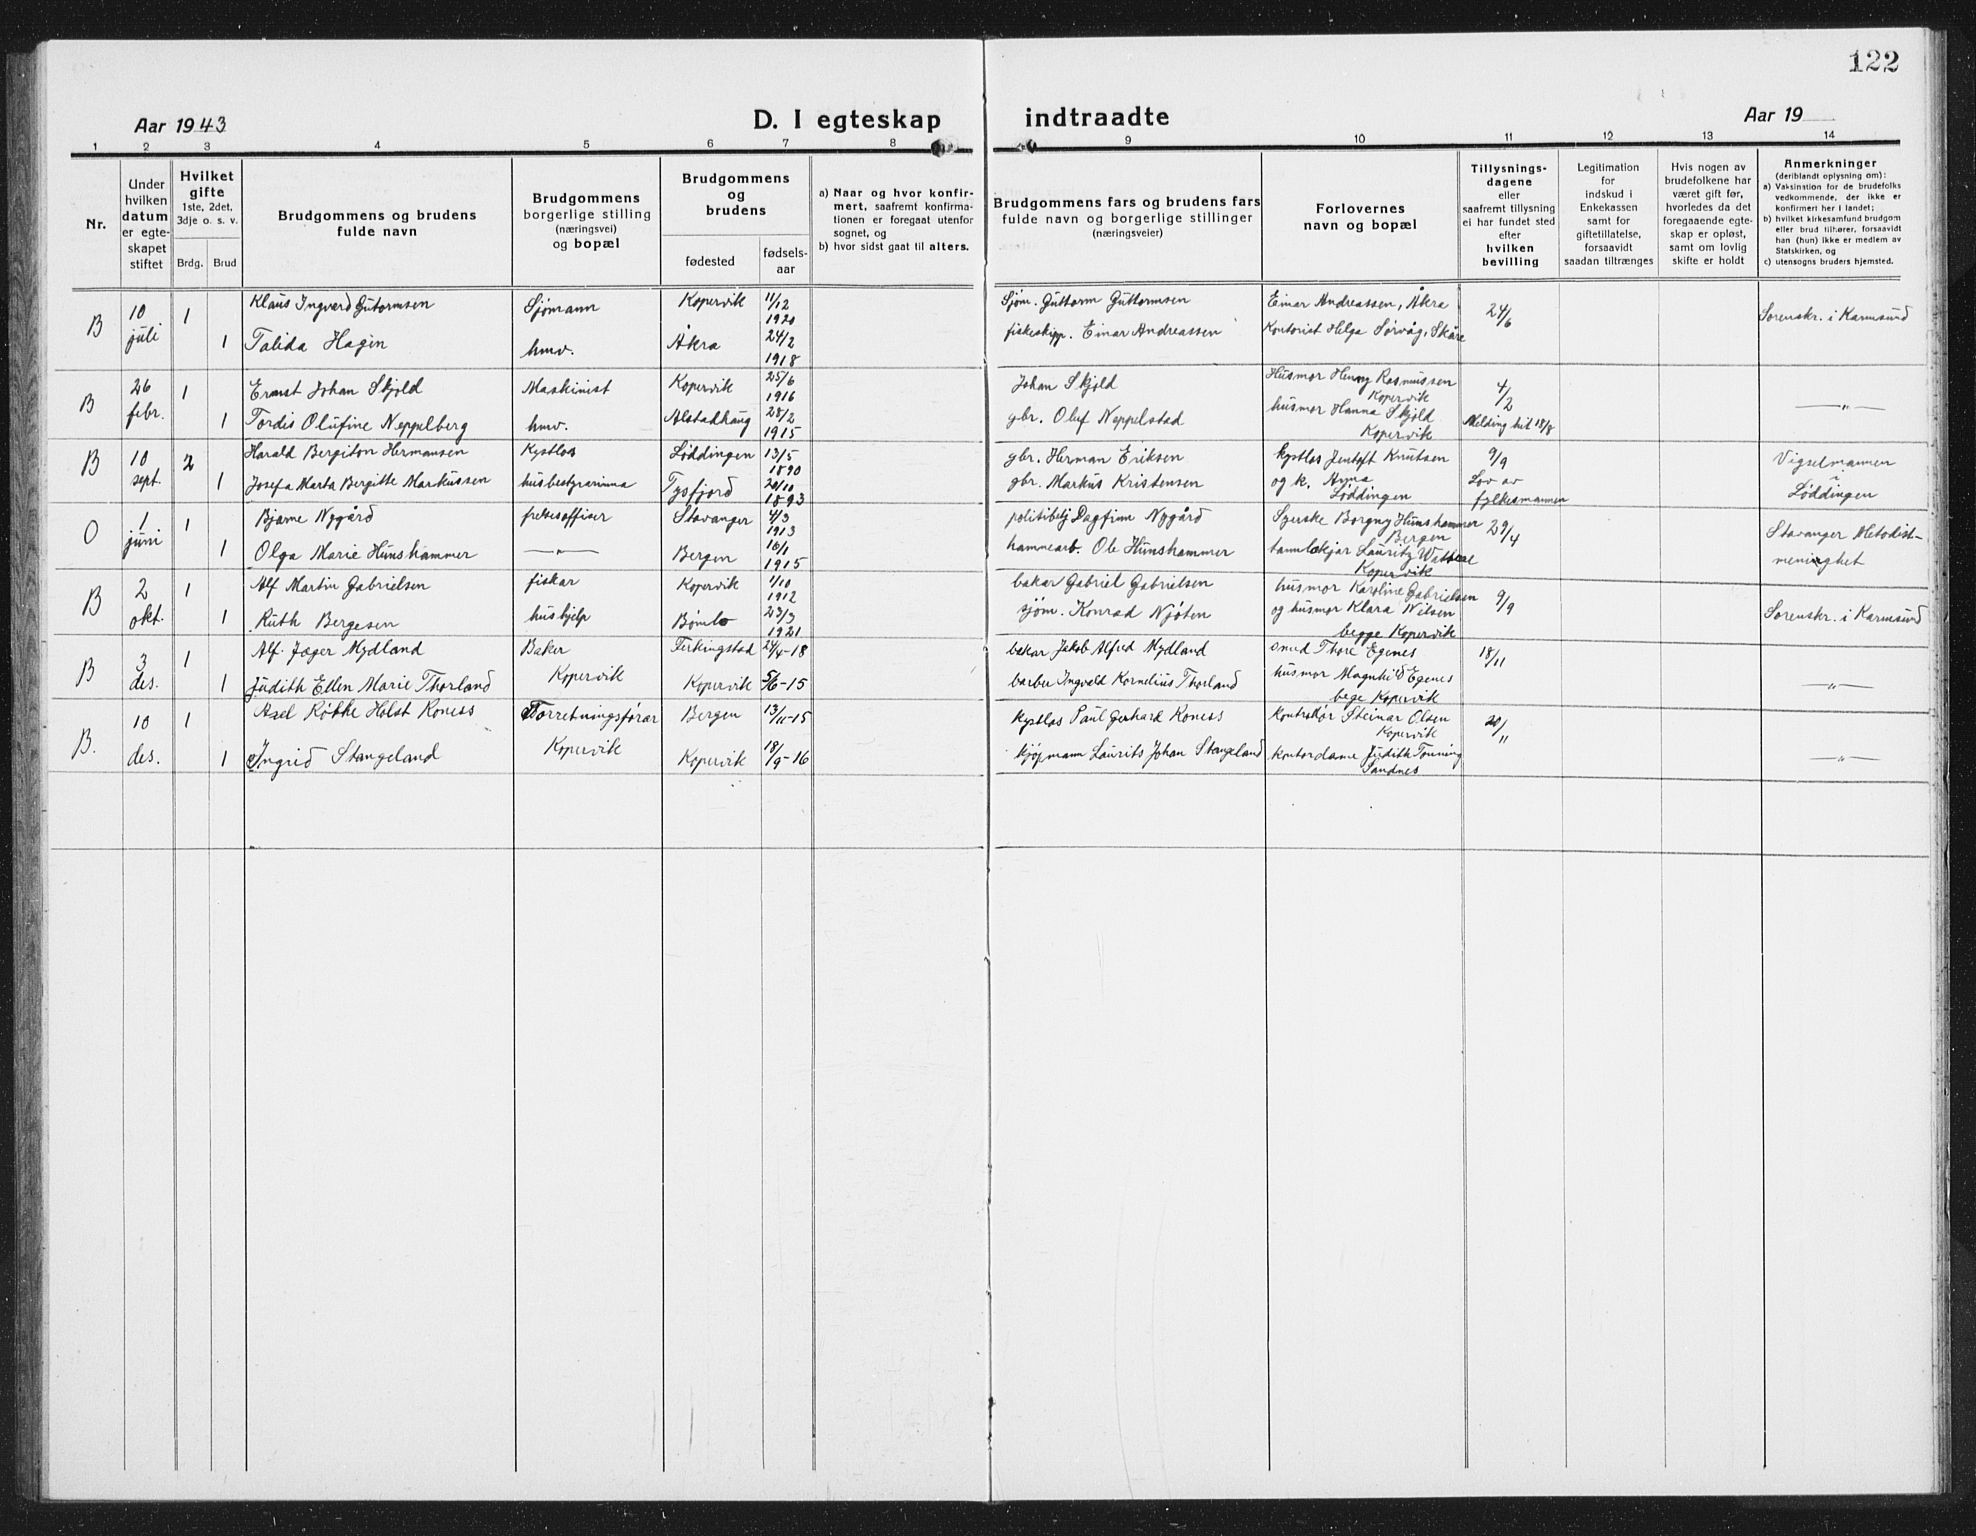 122
Aar 1943
D. I egteskap
indtraadte
Aar 19
1 2 3 4 5 6 7 8 9 10 11 12 13 14
Nr.
Under hvilken datum er egteskapet stiftet
Hvilket gifte
1ste, 2det, 3dje o. s. v.
Brdg. Brud
Brudgommens og brudens fulde navn
Brudgommens borgerlige stilling (næringsvei) og bopæl
Brudgommens og brudens
fødested fødselsaar
a) Naar og hvor konfirmert, saafremt konfirmationen er foregaat utenfor sognet, og
b) hvor sidst gaat til alters.
Brudgommens fars og brudens fars fulde navn og borgerlige stillinger (næringsveier)
Forlovernes navn og bopæl
Tillysningsdagene eller saafremt tillysning ei har fundet sted efter hvilken bevilling
Legitimation for indskud i Enkekassen samt for giftetillatelse, forsaavidt saadan tiltrænges
Hvis nogen av brudefolkene har været gift før, hvorledes da det foregaaende egteskap er opløst, samt om lovlig skifte er holdt
Anmerkninger
(deriblandt oplysning om):
a) Vaksination for de brudefolks vedkommende, der ikke er konfirmert her i landet;
b) hvilket kirkesamfund brudgom eller brud tilhører, forsaavidt han (hun) ikke er medlem av Statskirken, og
c) utensogns bruders hjemsted.
B 10 juli 1 Klaus Ingvard Gutormsen Sjømann Kopervik 11/12 1920 Sjøm. Guttorm Guttormsen Einar Andreassen, Åkra 24/6 Sorenskr. i Karmsund
1 Talida Hagen hmv. Åkra 24/2 1918 fiskeskipp. Einar Andreassen Kontorist Helga Sørvåg, Skåre
B 26 febr. 1 Ernst Johan Skjold Maskinist Kopervik 25/6 1916 Johan Skjold Husmor Henny Rasmussen Kopervik 4/2 —"—
1 Tordis Olufine Neppelberg hmv. Alstadhaug 28/2 1915 gbr. Oluf Neppelstad husmor Hanna Skjold Kopervik Melding hit 18/8
B 10 sept. 2 Harald Bergiton Hermansen Kystlos Løddingen 13/5 1890 gbr. Herman Eriksen kystlos Jentoft Knutsen 9/9 Vigselmannen i Løddingen
1 Josefa Marta Bergitte Markussen husbestyrarinna Tysfjord 20/10 1893 gbr. Markus Kristensen og k. Anna Løddingen Lov av fylkesmannen
O 1 juni 1 Bjarne Nygård frelsesoffiser Stavanger 4/3 1913 politibetj Dagfinn Nygård Syerske Borgny Hunshammer Bergen 29/4 Stavanger Metodistmenighet
1 Olga Marie Hunshammer —"— Bergen 10/1 1915 hammearb. Ole Hunshammer tannlækjar Lauritz Kopervik
B 2 okt. 1 Alf Martin Gabrielsen fiskar Kopervik 1/10 1912 bakar Gabriel Gabrielsen husmor Karoline Gabrielsen 9/9 Sorenskr. i Karmsund
1 Ruth Bergesen hushjelp Bømlo 23/3 1921 sjøm. Konrad Njøten og husmor Klara Nilsen begge Kopervik
B 3 des. 1 Alf Jæger Mydland Baker Ferkingstad 24/4-18 bakar Jakob Alfred Mydland smed Thore Egenes 18/11 —"—
1 Judith Ellen Marie Thorland Kopervik Kopervik 5/6-15 barber Ingvald Kornelius Thorland husmor Magnhild Egenes bege Kopervik
B. 10 des. 1 Axel Røbke Holst Koness Forretningsførar Bergen 13/11-15 kystlos Paul Gerhard Koness kontrollør Steinar Olsen Kopervik 20/11 —"—
1 Ingrid Stangeland Kopervik Kopervik 18/9-16 kjøpmann Laurits Johan Stangeland kontordame Judith Tonning Sandnes